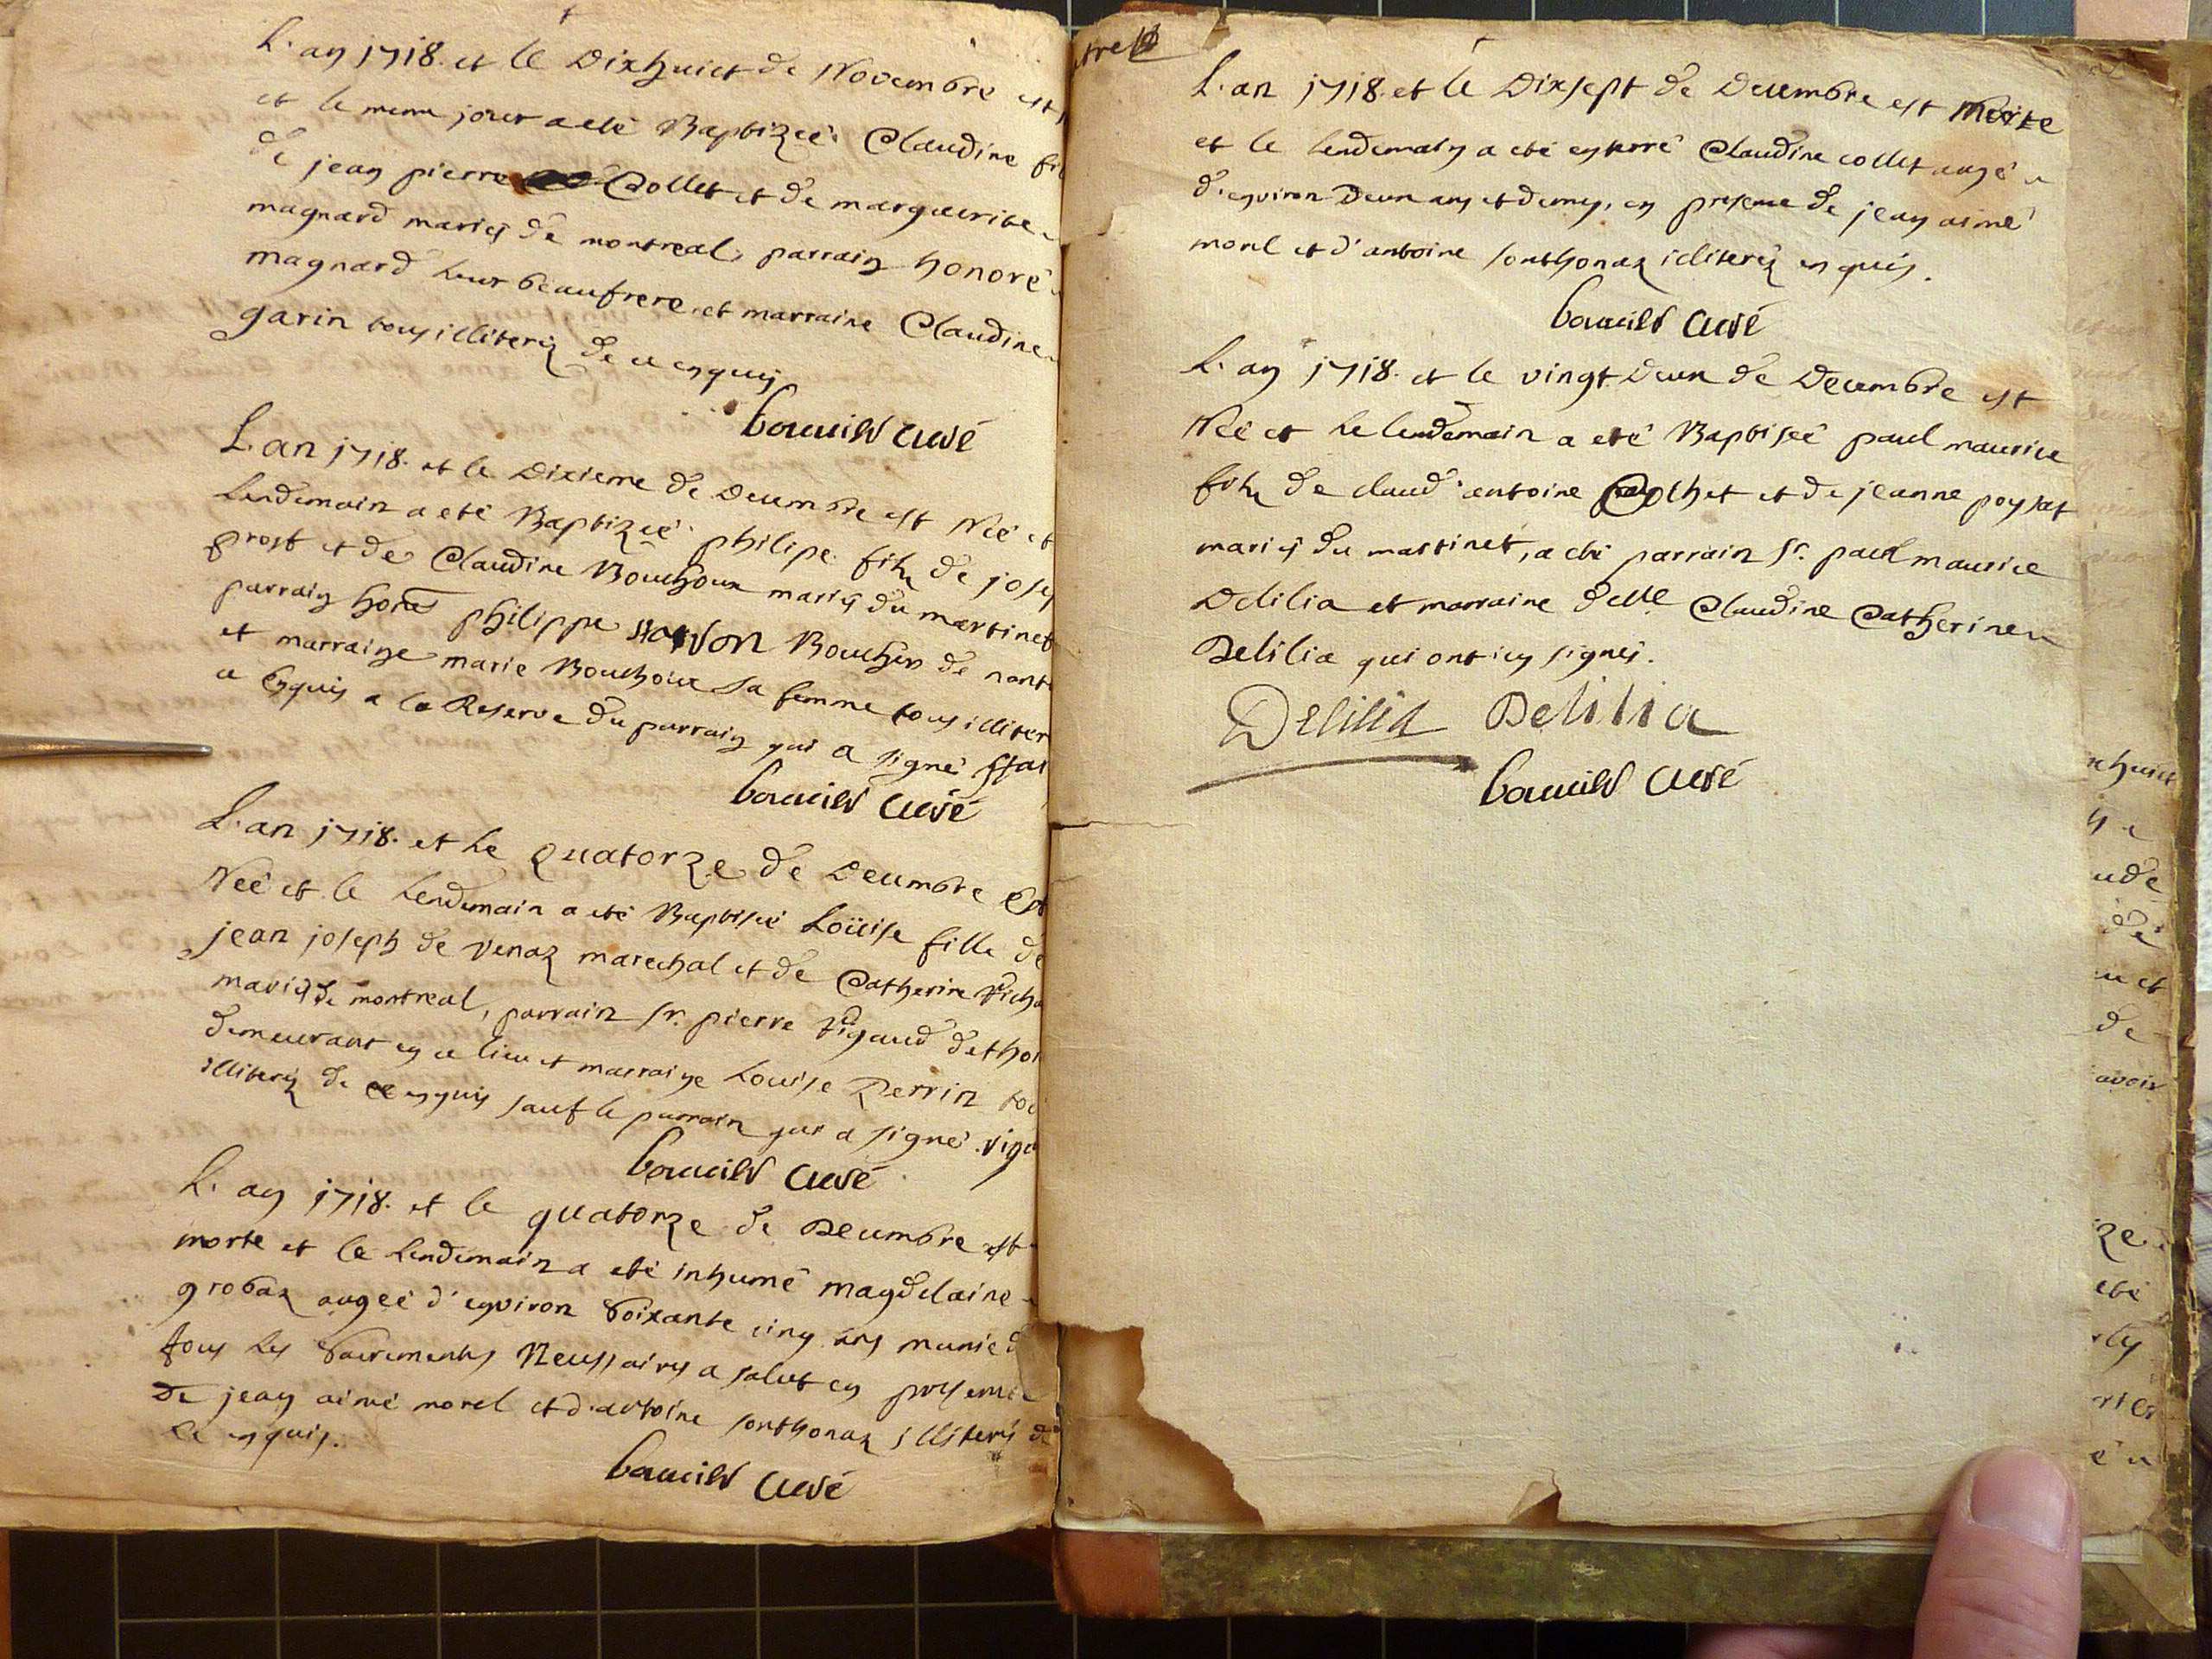 L'an 1718. et le Dixhuict de Novembre est
et le meme jour a eté Baptizeé Claudine fi
de jean pierre Collet et de marguerite
magnard mariés de montreal, parrain honoré
magnard leur beaufrere et marraine Claudine
garin tous illiterés de ce enquis
L'an 1718. et le Dixieme de Decembre est Neé et
lendemain a eté Baptizeé philipe fils de jose
prost et de Claudine Bouchoux mariés du martinet
parrain philippe Boucher de nant
et marraine marie Bouchoux sa femme tous illiter
ce Enquis a la Reserve du parrain qui a signé
Curé
L'an 1718. et le quatorze de Decembre Est
Neé et le lendemain a eté Baptiseé Loüise fille de
jean joseph de Venaz marechal et de Catherine
mariés de montreal, parrain sr. pierre Vigaud
demeurant en ce lieu et marraine Louise Perrin tou
illiterés de ce enquis sauf le parrain qui a signé. Viga
Curé
L'an 1718. et le quatorze de Decembre est
morte et le lendemain a eté inhumé magdelaine
grobaz augeé d'environ Soixante cinq ans munie d
tous les Sacrements Necessaires a salut en presence
De jean aimé morel et d'antoine sonthonax illiterés de
ce enquis.
Curé
L'an 1718. et le Dixsept de Decembre est Morte
et le lendemain a eté enterré Claudine collet augé
d'environ Deux ans et demy, en presence de jean aimé
morel et d'antoine sonthonax illiterés enquis.
Curé
L'an 1718. et le vingt Deux de Decembre est
Neé et le lendemain a eté Baptiseé paul maurice
fils de claud antoine et de jeanne poysat
mariés du martinet, a eté parrain sr. paul maurice
Delilia et marraine delle Claudine Catherine
Delilia qui ont icy signés.
Delilia Delilia
Curé